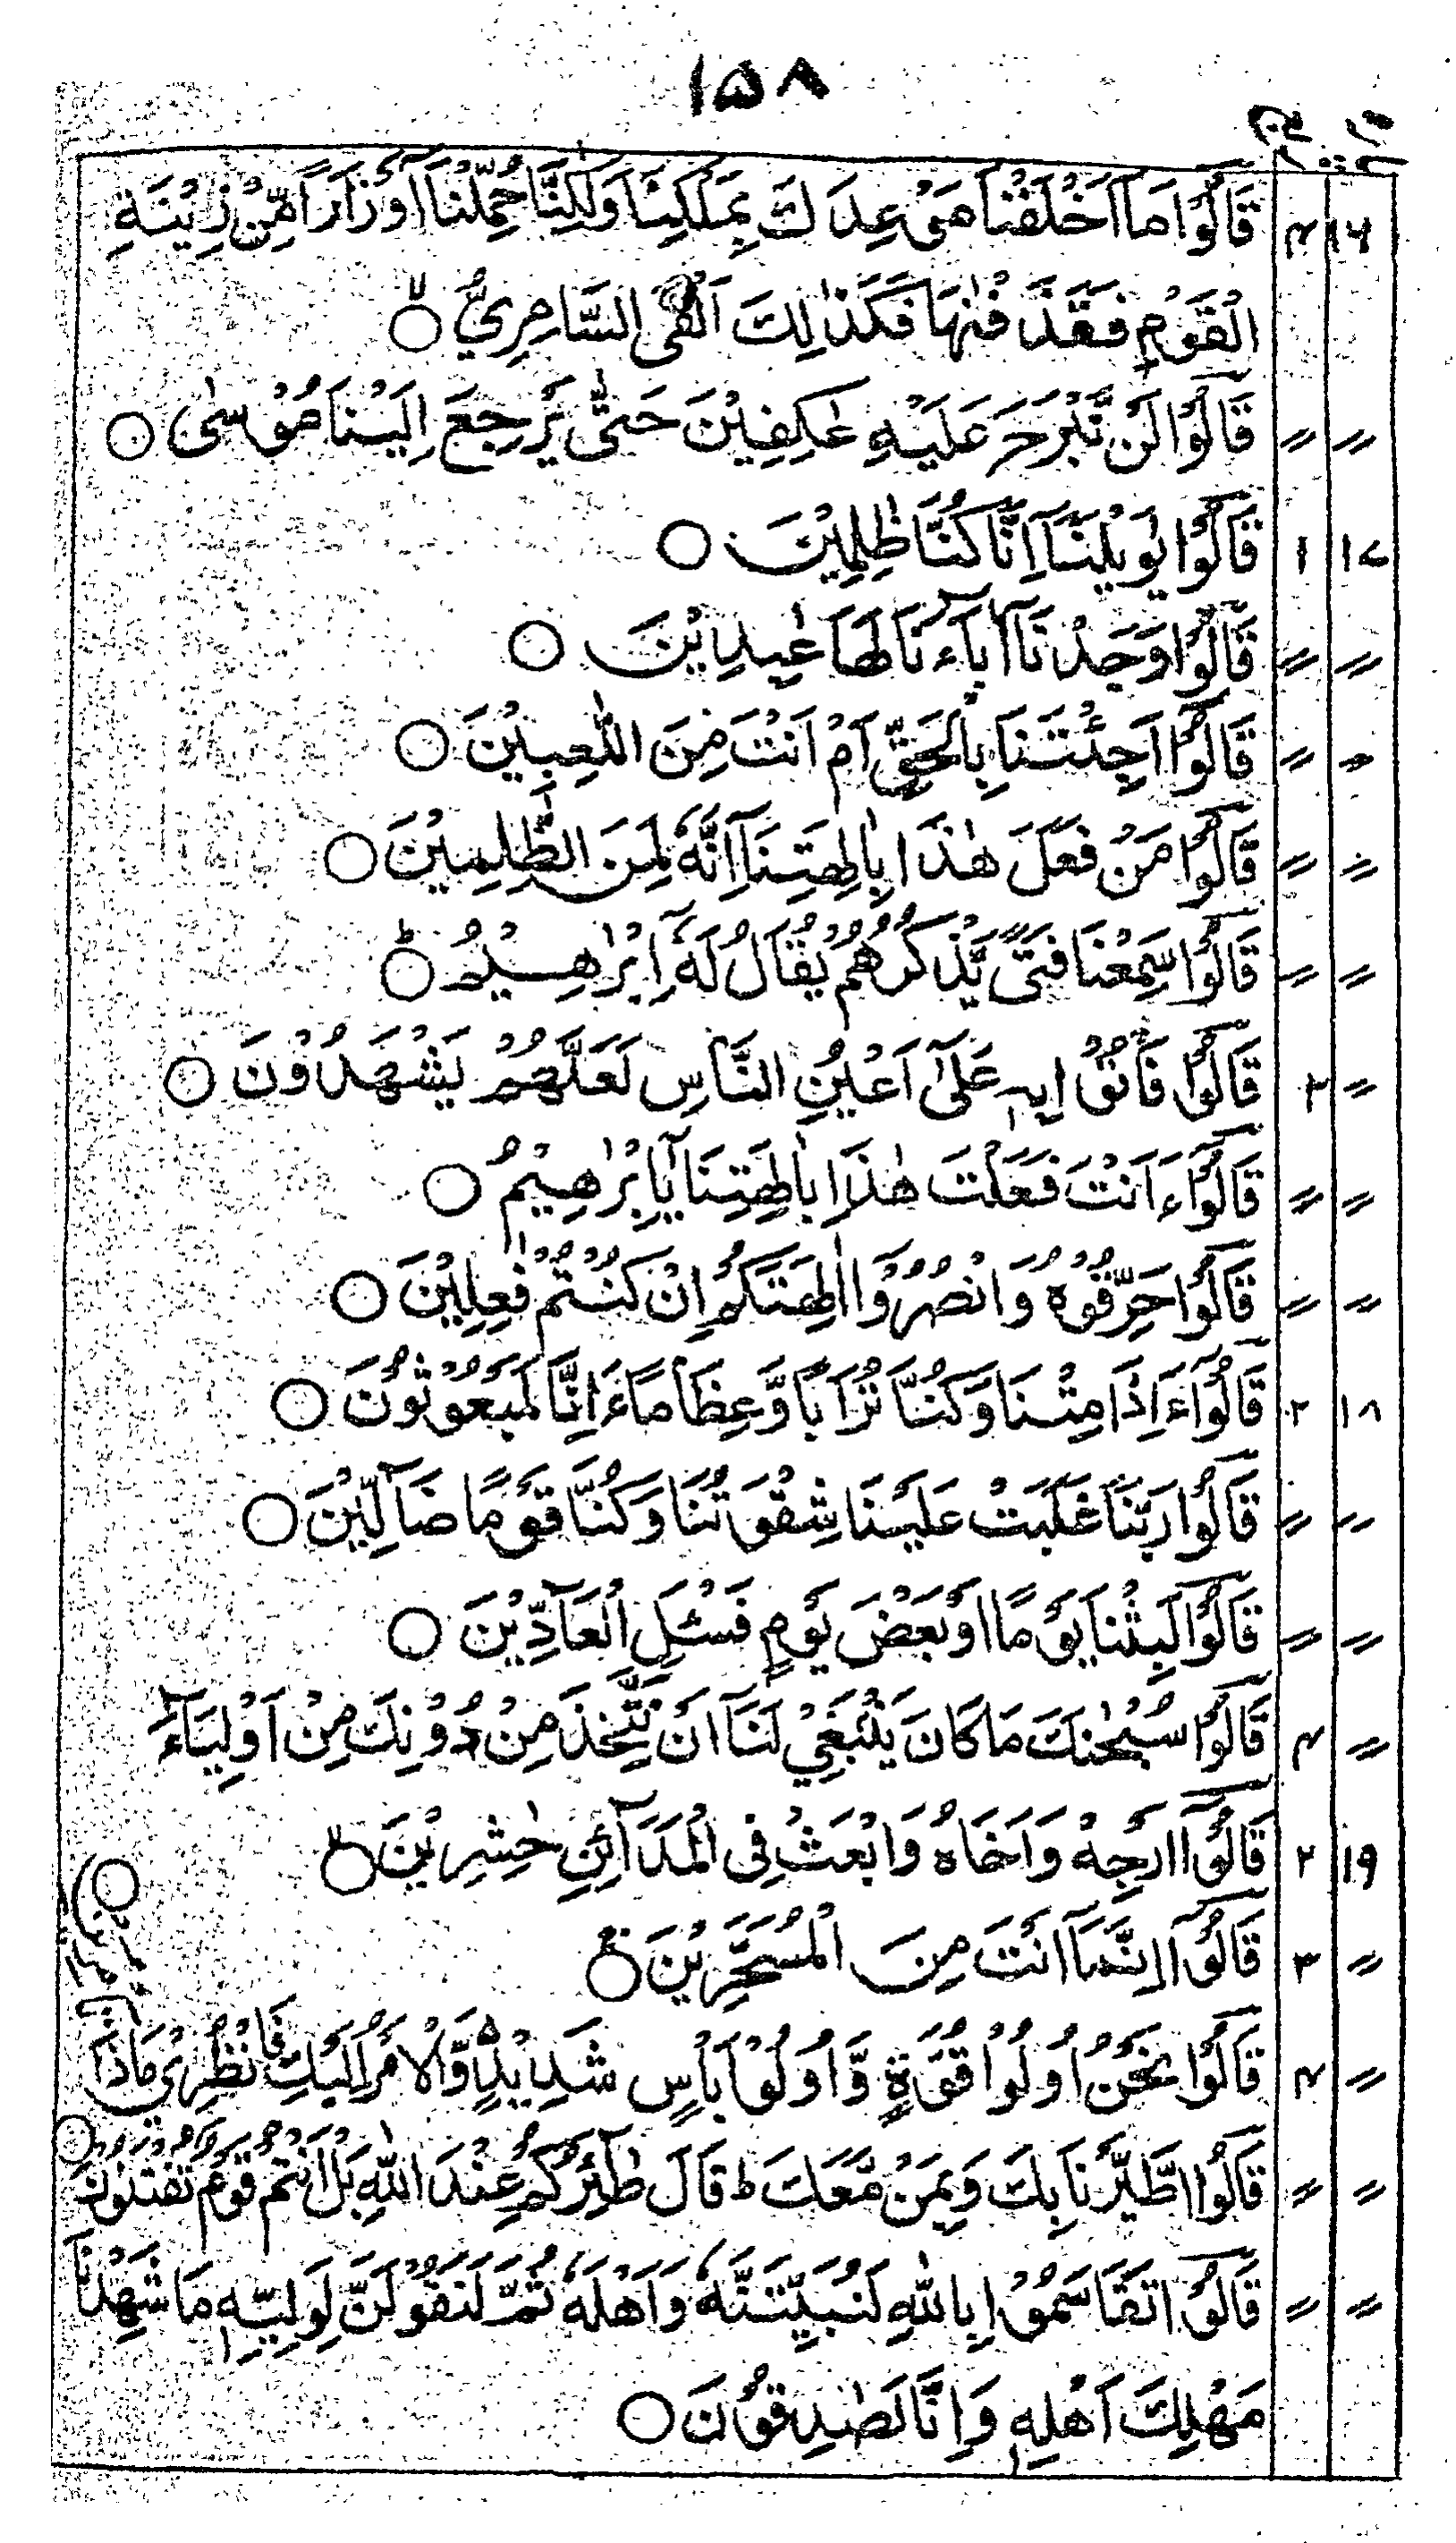 ۱۵۸
۱۶ ۴ قَالُوْا مَاۤ اَخْلَفْنَا مَوْعِدَكَ بِمَلْكِنَا وَلٰكِنَّا حُمِّلْنَاۤ اَوْزَارًا مِّنْ زِيْنَةِ
الْقَوْمِ فَقَذَفْنٰهَا فَكَذٰلِكَ اَلْقَى السَّامِرِيُّ ۙ○
〃 〃 قَالُوْا لَنْ نَّبْرَحَ عَلَيْهِ عٰكِفِيْنَ حَتّٰى يَرْجِعَ اِلَيْنَا مُوْسٰى ○
۱۷ ۱ قَالُوْا يٰوَيْلَنَاۤ اِنَّا كُنَّا ظٰلِمِيْنَ ○
〃 〃 قَالُوْا وَجَدْنَاۤ اٰبَآءَنَا لَهَا عٰبِدِيْنَ ○
〃 〃 قَالُوْۤا اَجِئْتَنَا بِالْحَقِّ اَمْ اَنْتَ مِنَ اللّٰعِبِيْنَ ○
〃 〃 قَالُوْا مَنْ فَعَلَ هٰذَا بِاٰلِهَتِنَاۤ اِنَّهٗ لَمِنَ الظّٰلِمِيْنَ ○
〃 〃 قَالُوْا سَمِعْنَا فَتًى يَّذْكُرُهُمْ يُقَالُ لَهٗۤ اِبْرٰهِيْمُ ؕ○
〃 ۲ قَالُوْا فَاْتُوْا بِهٖ عَلٰۤى اَعْيُنِ النَّاسِ لَعَلَّهُمْ يَشْهَدُوْنَ ○
〃 〃 قَالُوْۤا ءَاَنْتَ فَعَلْتَ هٰذَا بِاٰلِهَتِنَا يٰۤاِبْرٰهِيْمُ ○
〃 〃 قَالُوْا حَرِّقُوْهُ وَانْصُرُوْۤا اٰلِهَتَكُمْ اِنْ كُنْتُمْ فٰعِلِيْنَ ○
۱۸ ۲ قَالُوْۤا ءَاِذَا مِتْنَا وَكُنَّا تُرَابًا وَّعِظَامًا ءَاِنَّا لَمَبْعُوْثُوْنَ ○
〃 〃 قَالُوْا رَبَّنَا غَلَبَتْ عَلَيْنَا شِقْوَتُنَا وَكُنَّا قَوْمًا ضَآلِّيْنَ ○
〃 〃 قَالُوْا لَبِثْنَا يَوْمًا اَوْ بَعْضَ يَوْمٍ فَسْئَلِ الْعَآدِّيْنَ ○
〃 ۴ قَالُوْا سُبْحٰنَكَ مَا كَانَ يَنْۢبَغِيْ لَنَاۤ اَنْ نَّتَّخِذَ مِنْ دُوْنِكَ مِنْ اَوْلِيَآءَ
۱۹ ۲ قَالُوْۤا اَرْجِهْ وَاَخَاهُ وَابْعَثْ فِى الْمَدَآئِنِ حٰشِرِيْنَ ۙ○
〃 ۳ قَالُوْۤا اِنَّمَاۤ اَنْتَ مِنَ الْمُسَحَّرِيْنَ ۚ○
〃 ۴ قَالُوْا نَحْنُ اُولُوْا قُوَّةٍ وَّاُولُوْا بَاْسٍ شَدِيْدٍ ۙ۬ وَّالْاَمْرُ اِلَيْكِ فَانْظُرِىْ مَاذَا تَاْمُرِيْنَ ○
〃 〃 قَالُوا اطَّيَّرْنَا بِكَ وَبِمَنْ مَّعَكَ ؕ قَالَ طٰٓئِرُكُمْ عِنْدَ اللّٰهِ بَلْ اَنْتُمْ قَوْمٌ تُفْتَنُوْنَ ○
〃 〃 قَالُوْا تَقَاسَمُوْا بِاللّٰهِ لَنُبَيِّتَنَّهٗ وَاَهْلَهٗ ثُمَّ لَنَقُوْلَنَّ لِوَلِيِّهٖ مَا شَهِدْنَا
مَهْلِكَ اَهْلِهٖ وَاِنَّا لَصٰدِقُوْنَ ○